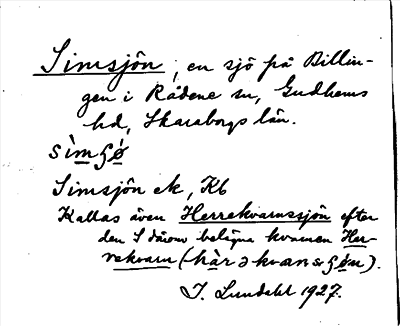 Simsjön, en sjö på Billin-
gen i Rådene sn, Gudhems
hd, Skaraborgs län.
sìmʂǿ
Simsjön ek, Kb
Kallas även Herrekvarnssjön efter
den S därom belägna kvarnen Her-
rekvarn (hàrəkvansʂǿn).
J. Lundahl 1927.